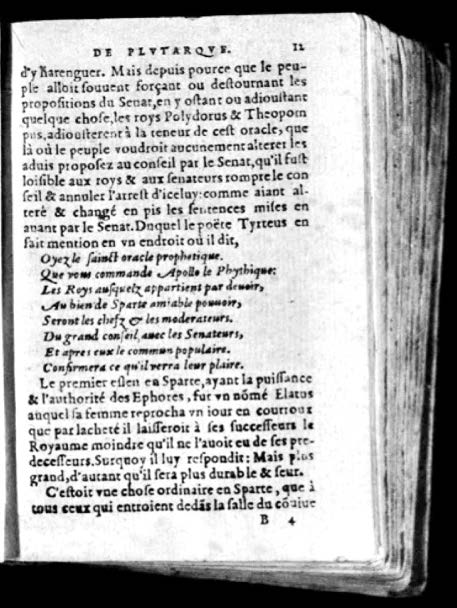 DE PLVTARQVE. 12
d'y harenguer. Mais depuis pource que le peu-
ple alloit souuent forçant ou destournant les
propositions du Senat, en y ostant ou adioustant
quelque chose, les roys Polydorus & Theopom
pus, adiousterent à la teneur de cest oracle, que
là où le peuple voudroit aucunement alterer les
aduis proposez au conseil par le Senat, qu'il fust
loisible aux roys & aux senateurs rompre le con
seil & annuler l'arrest d'iceluy: comme aiant al-
teré & changé en pis les sentences mises en
auant par le Senat. Duquel le poëte Tyrteus en
fait mention en vn endroit où il dit,
Oyez le sainct oracle prophetique.
Que vous commande Apollo le Phythique:
Les Roys ausquelz appartient par deuoir,
Au bien de Sparte amiable pouuoir,
Seront les chefz & les moderateurs.
Du grand conseil auec les Senateurs,
Et apres eux le commun populaire.
Confirmera ce qu'il verra leur plaire.
Le premier eslen en Sparte, ayant la puissance
& l'authorité des Ephores, fut vn nōmé Elatus
auquel sa femme reprocha vn iour en courroux
que par lacheté il laisseroit à ses successeurs le
Royaume moindre qu'il ne l'auoit eu de ses pre-
decesseurs. Surquoy il luy respondit: Mais plus
grand, d'autant qu'il sera plus durable & seur.
C'estoit vne chose ordinaire en Sparte, que à
tous ceux qui entroient dedās la salle du cōuiue
B 4